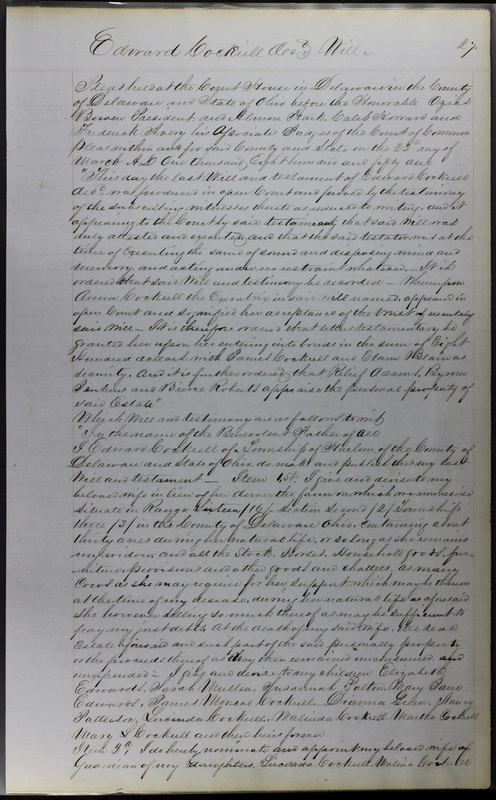 Edward Cockrell Decd Will 27
Pleas held at the Court House in Delaware in the County
of Delaware and State of Ohio before the Honorable Ozias
Bowen President and Almon Stark, Caleb Howard and
Frederick Avery his Associate Judges of the Court of Common
Pleas within and for said County and State on the 22d day of
March A.D. One thousand, Eight hundred and fifty one
"This day the last Will and testament of Edward Cockrell
decd was produced in open Court and proved by the testimony
of the subscribing witnesses thereto as reduced to writing, and it
appearing to the Court by said testimony that said Will was
duly attested and executed, and that the said testator was at the
time of Executing the same of sound and disposing mind and
memory and acting under no restraint whatever. — It is
ordered that said Will and testimony be recorded — Whereupon
Anna Cockrell the Executrix in said will named, appeared in
open Court and signified her acceptance of the trust of executing
said Will — It is therefore ordered that letters testamentary be
granted her upon her entering into bonds in the sum of Eight
Hundred dollars with James Cockrell and as
security. And it is further ordered, that Adams, Byron
Jenkins and Roberts appraise the personal property of
said Estate"
Which Will and testimony are as follows to wit
"In the name of the Benevolent Father of all
I Edward Cockrell of Township of Harlem of the County of
Delaware and State of Ohio do make and publish this my last
Will and testament — Item 1st. I give and devise to my
beloved wife in lieu of her dower the farm on which we now reside
situate in Range Sixteen /16/ Section Second /2/ Township
three /3/ in the County of Delaware Ohio. Containing about
thirty acres during her natural life, or so long as she remains
my widow, and all the Stock. Horses. Household goods, fur-
niture, provisions and other goods and chattles, as many
Cows as she may require for her support which may be thereon
at the time of my decease, during her natural life as aforesaid
she however selling so much thereof as may be sufficient to
pay my just debts. At the death of my said wife, the real
Estate aforesaid and such part of the said personally property
or the proceeds thereof as may then remained unconsumed and
unexpended — I give and devise to my children Elizabeth
Edwards, Sarah Mullen, Susannah Fulton, Mary Jane
Edwards, James Cockrell, Nancy
Patterson, Lucinda Cockrell, Malinda Cockrell Martha Cockrell
Mary L Cockrell and their heirs forever
Item 2d. I do hereby nominate and appoint my beloved wife as
Guardian of my daughters, Lucinda Cockrell, Malina Cockrell